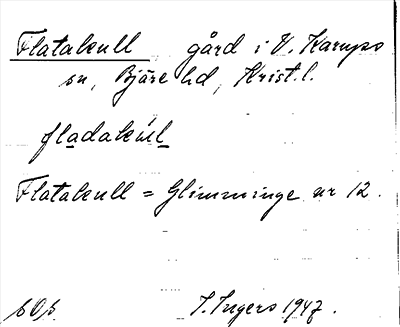 Flatakull gård i V. Karups
sn, Bjäre hd, Krist. l.
fladakul
Flatakull = Glimminge nr 12.
I. Ingers 1947.